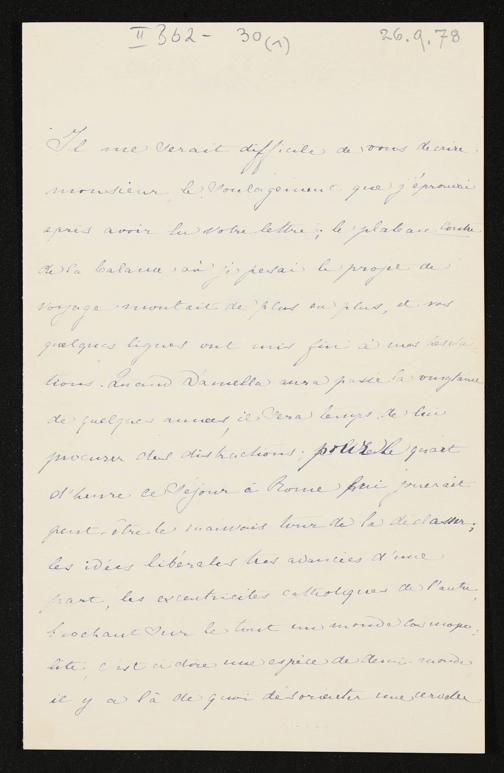 II 362 - 30(1) 26.9.78
Il me serait difficile de vous decrire
monsieur le soulagement que j'éprouvai
après avoir lu votre lettre; le plateau contre
de la balance où je pesai le projet de
voyage montait de plus en plus, et vos
quelques lignes ont mis fin à mes hésita
tions. Quand Damella aura passé la vingtaine
de quelques années, il sera temps de lui
procurer des distractions; pour le quart
d'heure ce séjour à Rome lui jouerait
peut-être le mauvais tour de la déclasser;
les idées libérales très avancées d'une
part, les excentricités catholiques de l'autre,
brochant sur le tout un monde cosmopo
lite, c'est à dire une espèce de demi-monde
il y a là de quoi désorienter une cervelle